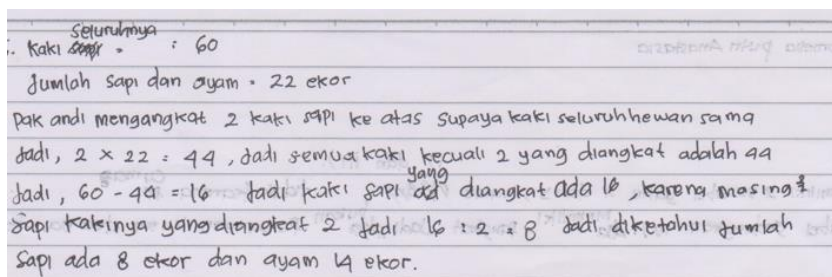 . Kaki seluruhnya : 60
Jumlah sapi dan ayam = 22 ekor
Pak andi mengangkat 2 kaki sapi ke atas supaya kaki seluruh hewan sama
Jadi, 2 x 22 = 44, Jadi semua kaki kecuali 2 yang diangkat adalah 44
Jadi, 60 - 44 = 16 Jadi kaki sapi yang diangkat ada 16 karena masing²
sapi kakinya yang diangkat 2 Jadi 16 : 2 = 8 Jadi diketahui Jumlah
Sapi ada 8 ekor dan ayam 14 ekor.